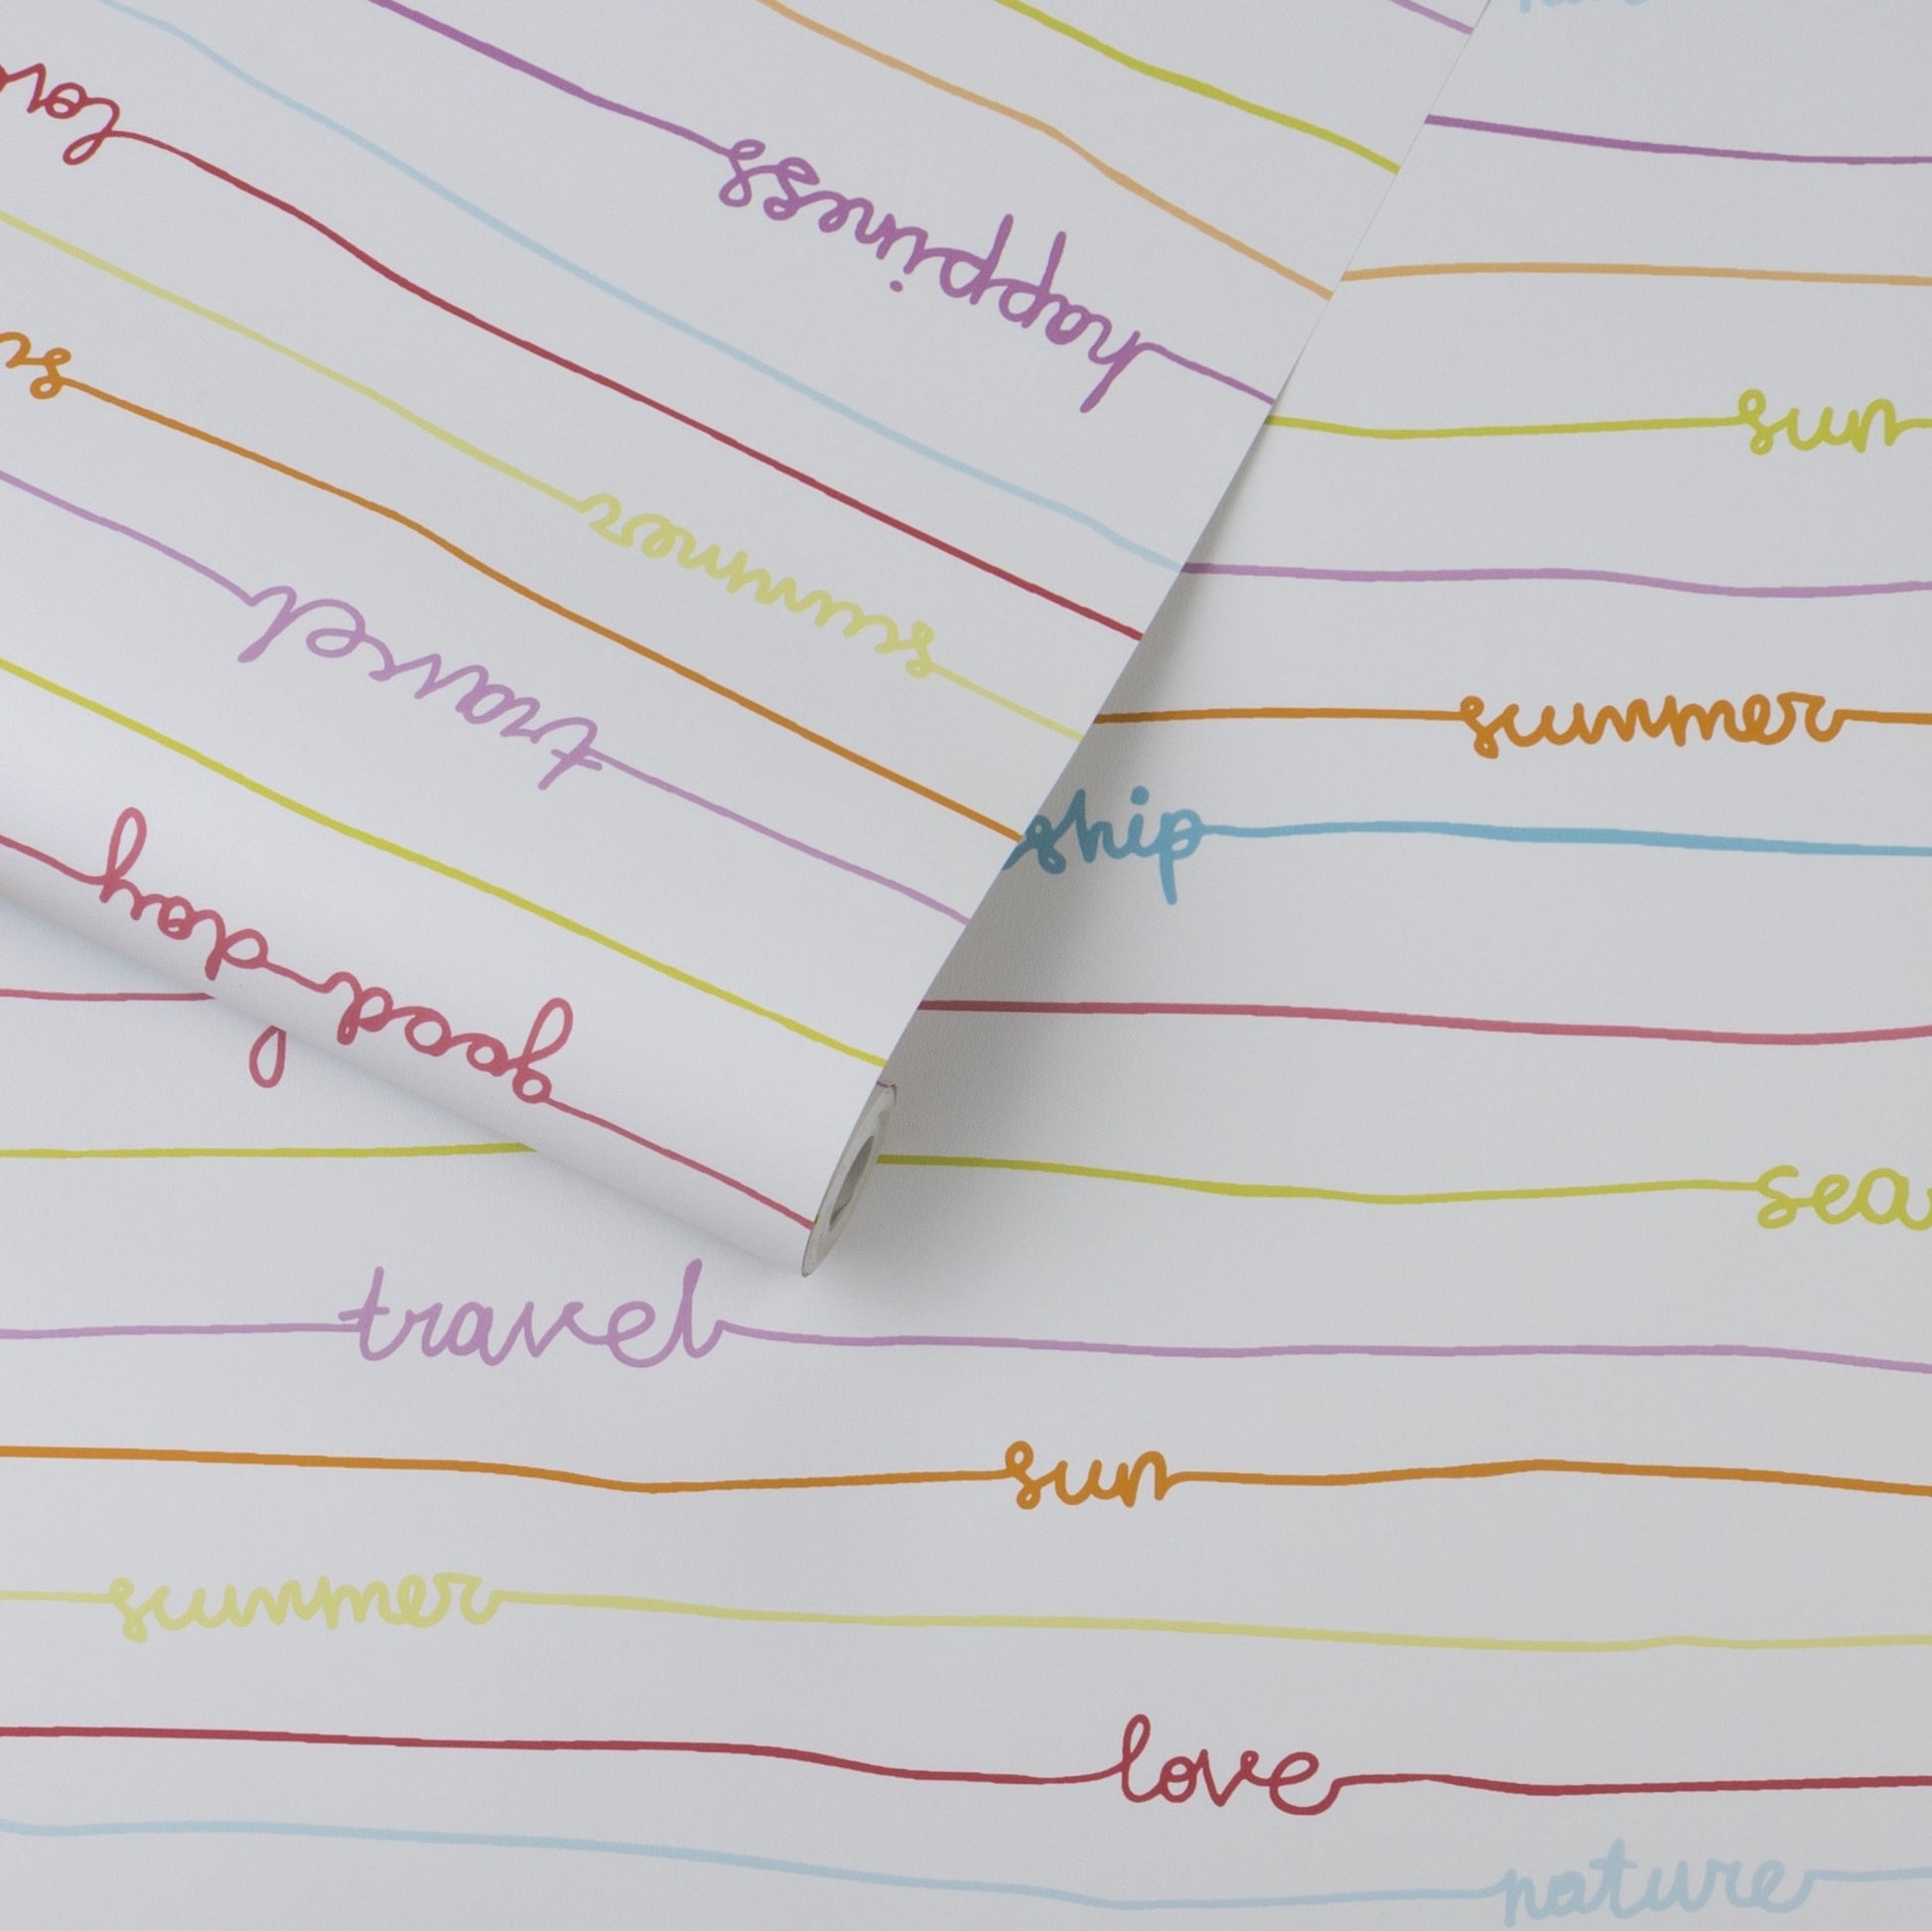 happiness
summer
travel
good day
sun
summer
ship
sea
travel
sun
summer
love
nature